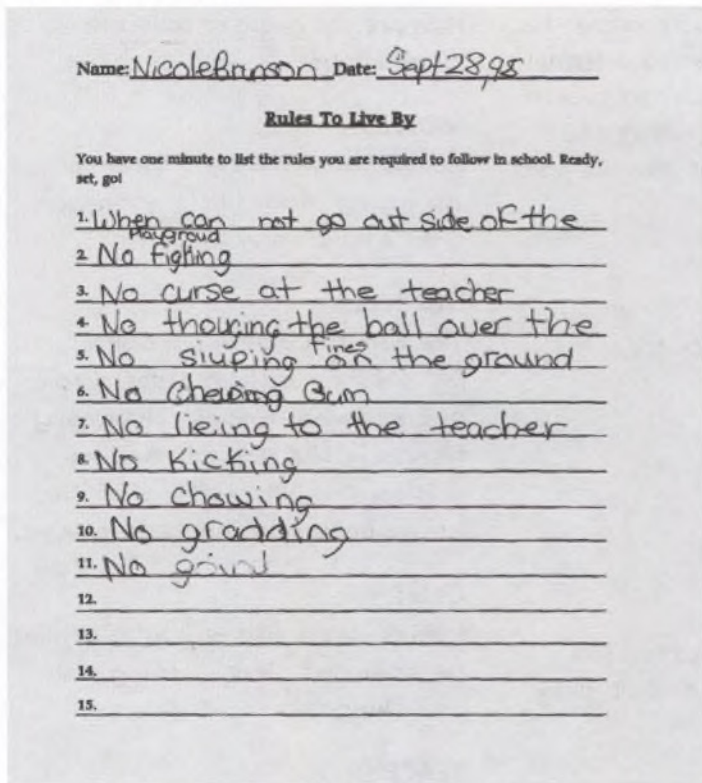 Name: Nicole Brunson Date: Sept 28, 98
Rules To Live By
You have one minute to list the rules you are required to follow in school. Ready,
set, go!
1. When can not go out side of the
Playgroud
2. No fighing
3. No curse at the teacher
4. No thouging the ball over the
Fines
5. No sluping on the ground
6. No chewing Gum
7. No lieing to the teacher
8. No kicking
9. No chowing
10. No gradding
11. No
12.
13.
14.
15.